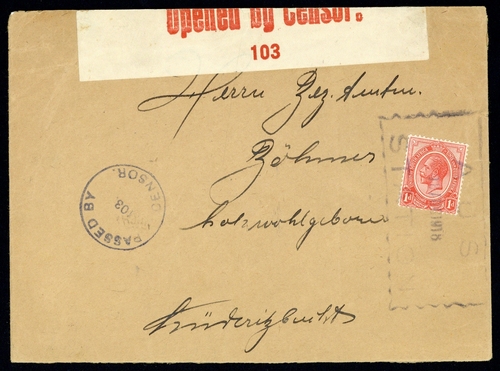 Opened by Censor.
103
Herrn Bez. Amtm.
Böhmer
hochwohlgeboren
Lüderitzbucht
PASSED BY CENSOR.
103
1d 1d